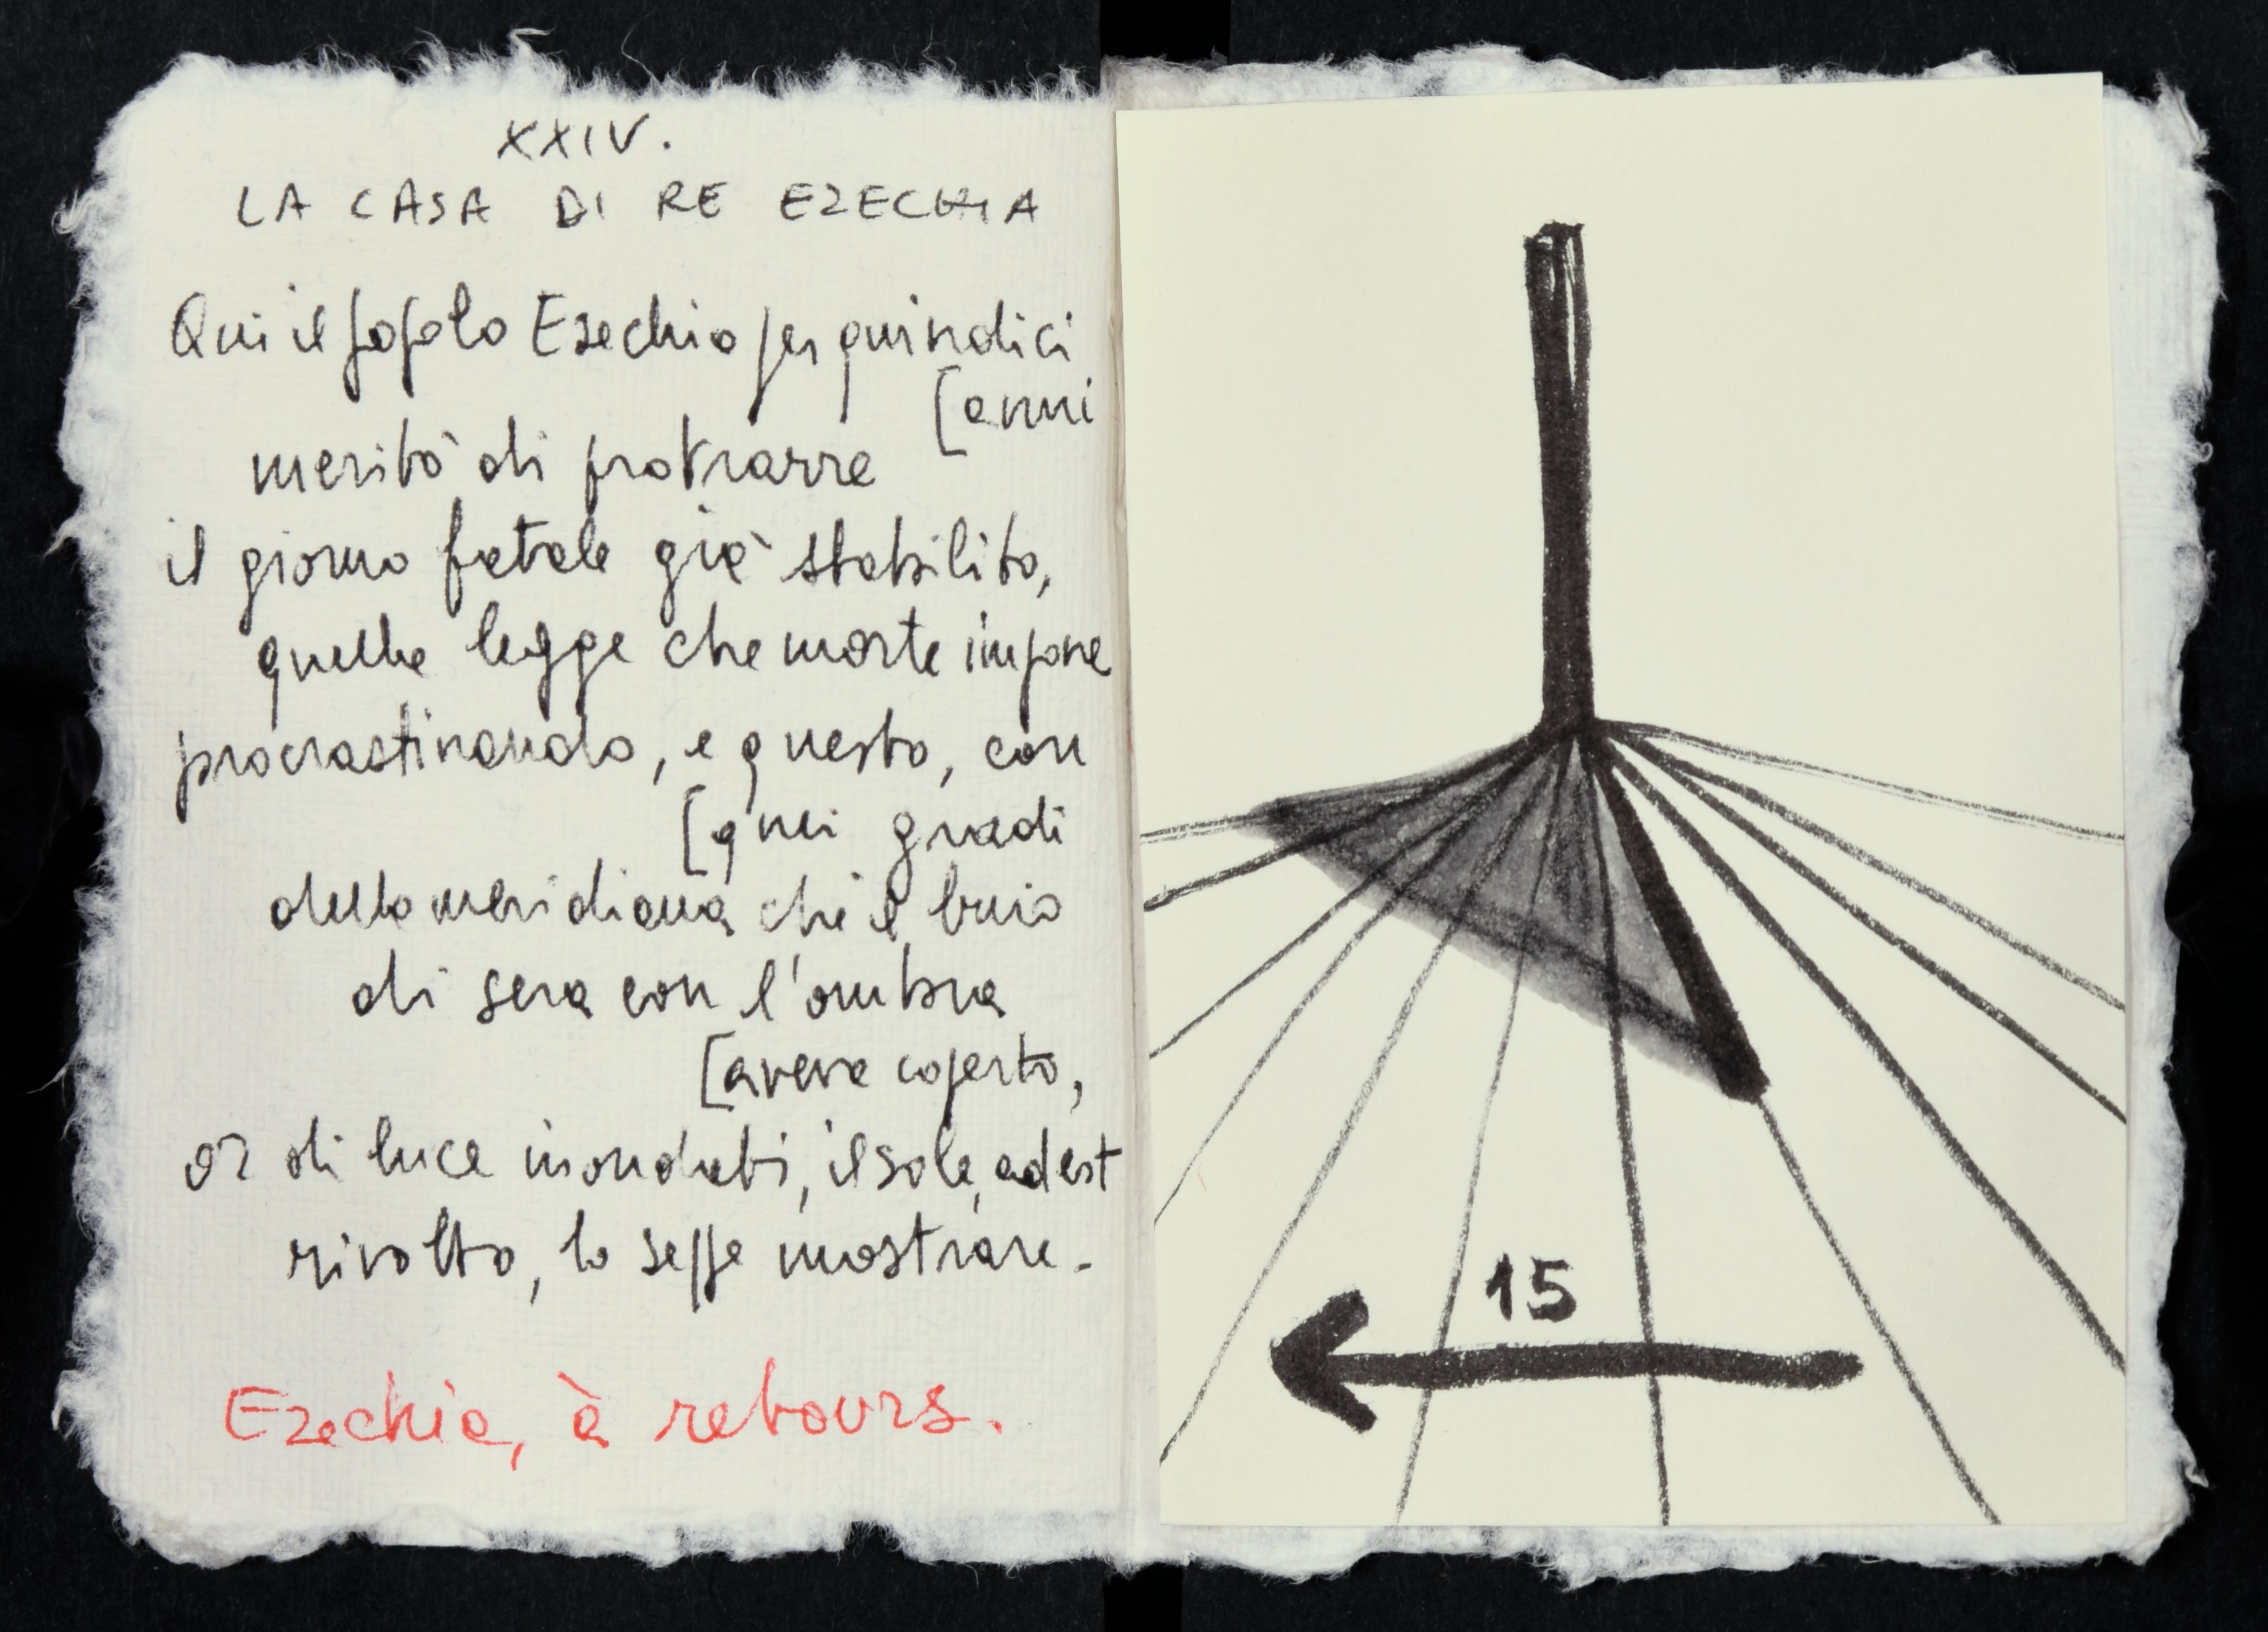 XXIV.
LA CASA DI RE EZECHIA
Qui il popolo Ezechia per quindici
[anni
meritò di protrarre
il giorno fatale già stabilito,
quella legge che morte impone
procrastinando, e questo, con
[quei gradi
della meridiana che il buio
di sera con l'ombra
[aveva coperto,
or di luce inondati, il sole, ad est
rivolto, lo seppe mostrare.
Ezechia, à rebours.
15